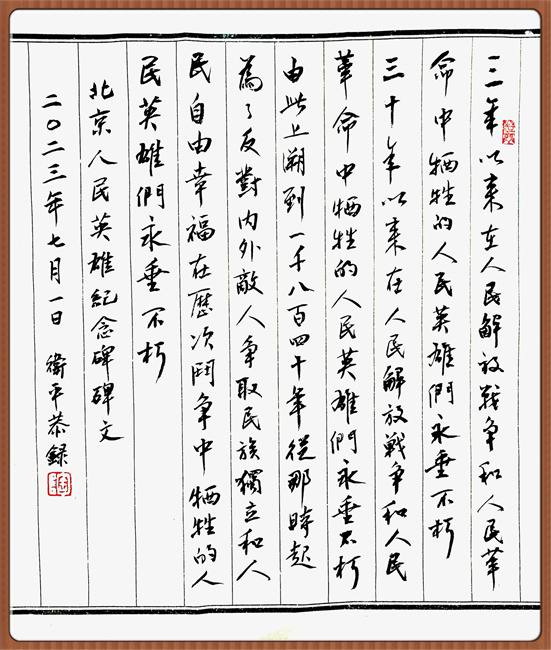 三年以来在人民解放戰争和人民革
命中牺牲的人民英雄們永垂不朽
三十年以来在人民解放戰争和人民
革命中牺牲的人民英雄們永垂不朽
由此上溯到一千八百四十年從那時起
為了反對内外敵人争取民族獨立和人
民自由幸福在歷次鬥争中牺牲的人
民英雄們永垂不朽
北京人民英雄紀念碑碑文
二〇二三年七月一日 衛平恭録